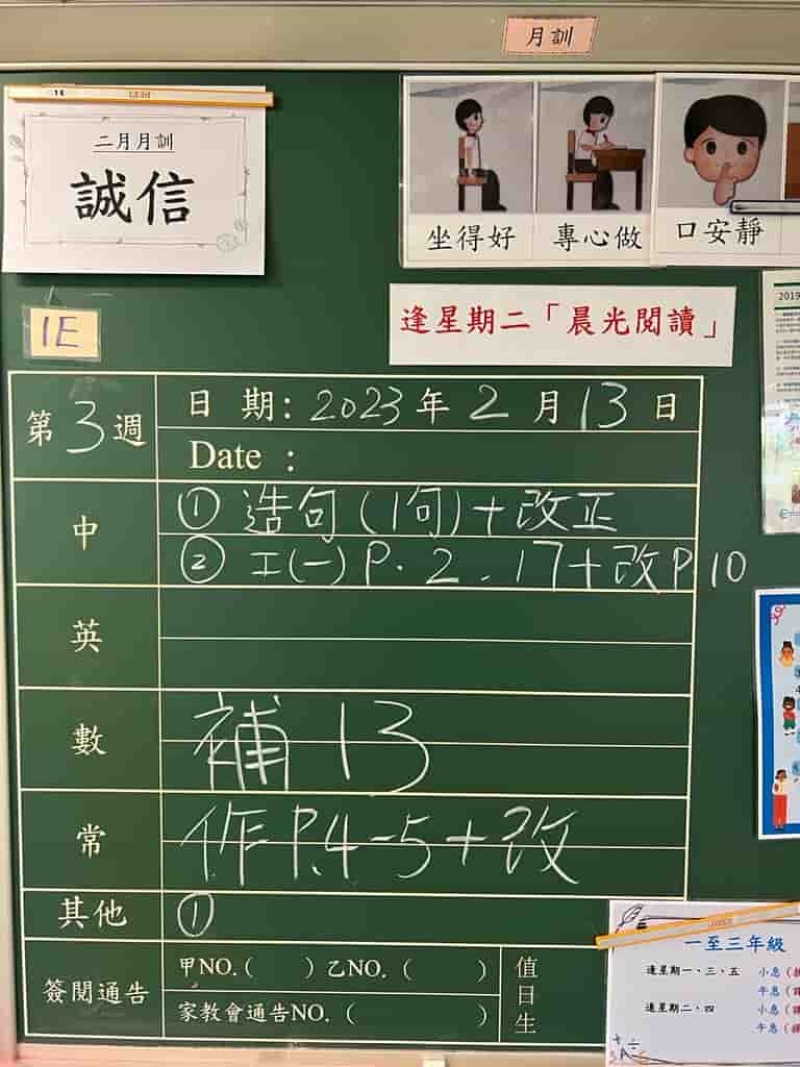 月訓
二月月訓
誠信
坐得好
專心做
口安靜
1E
逢星期二「晨光閱讀」
2019
第3週
日 期: 2023年2月13日
Date :
中
① 造句(1句)+改正
② 工(一) P. 2 . 17+改P 10
英
數
補 13
常
作 P.4-5+改
其他
①
簽閱通告
甲NO.( ) 乙NO. ( )
家教會通告NO. ( )
值日生
一至三年級
逢星期一、三、五
小息
午息
逢星期二、四
小息
午息